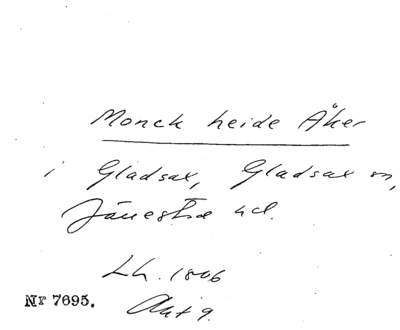 Monck heide Åker
i Gladsax, Gladsax sn,
Järrestad hd.
Lh. 1806
Akt 9.
Nr 7695.